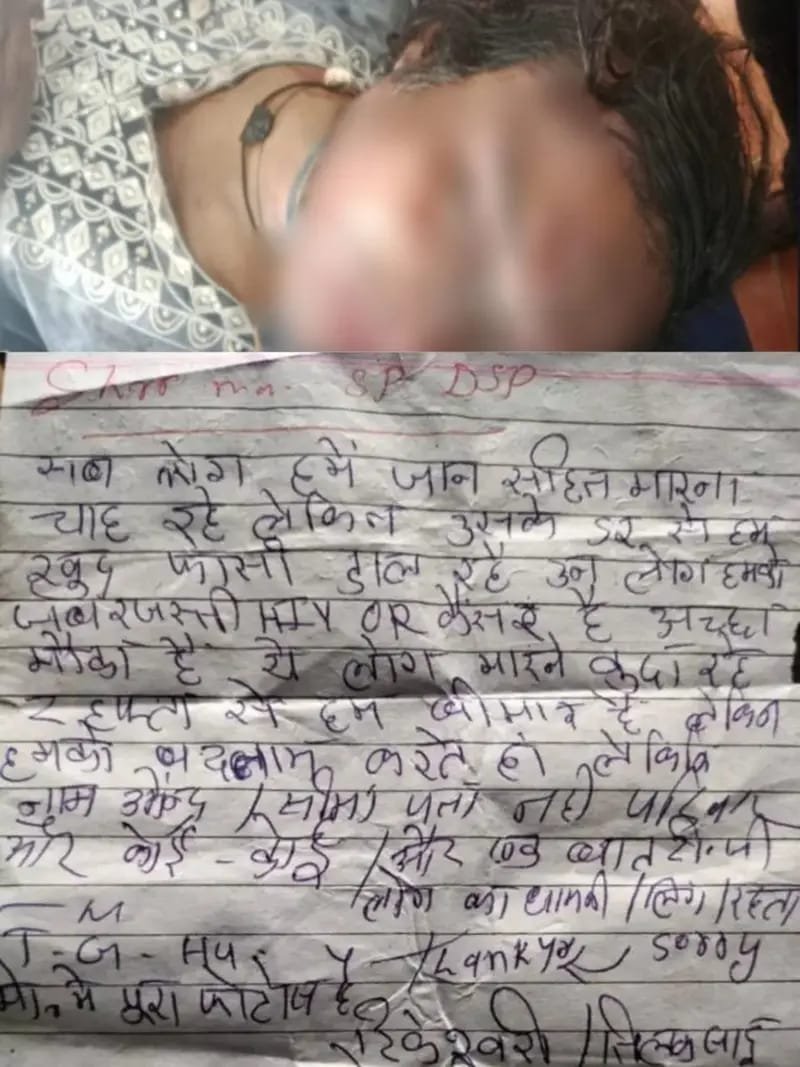 SP DSP
सब लोग हमें जान सहित मारना
चाह रहे लेकिन उसके डर से हम
खुद फासी डाल रहे उन लोग हमको
जबरजस्ती HIV OR कैंसर है अच्छा
मौका है ये लोग मारने कुदा रहे
2 हफ्ता से हम बीमार है लेकिन
हमको बदनाम करते हो
नाम / सीमा पता नही
और कोई - कोई / और एक
लोग का धामकी /
T - G - Hu - y - Thankyou sorry
मो. मे पूरा फोटोज है